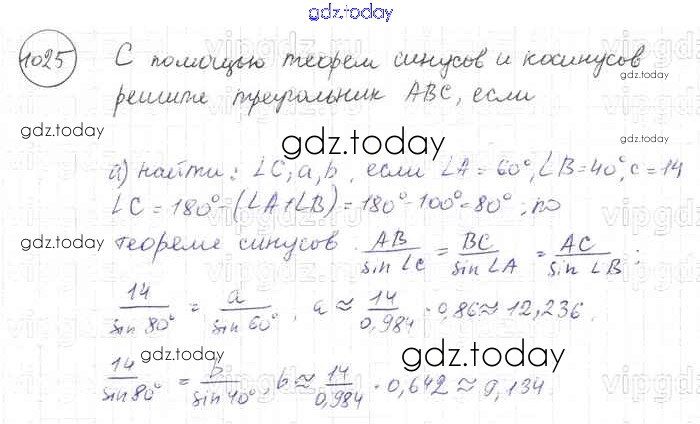 gdz.today
1025 С помощью теорем синусов и косинусов
решите треугольник ABC, если
gdz.today
gdz.today
gdz.today
а) найти: ∠C, a, b, если ∠A = 60°, ∠B = 40°, c = 14
∠C = 180° - (∠A + ∠B) = 180° - 100° = 80°; по
gdz.today
gdz.today
теореме синусов: AB/sin ∠C = BC/sin ∠A = AC/sin ∠B;
14/sin 80° = a/sin 60°, a ≈ 14/0,984 · 0,86 ≈ 12,236.
gdz.today
gdz.today
14/sin 80° = b/sin 40°, b ≈ 14/0,984 · 0,642 ≈ 9,134